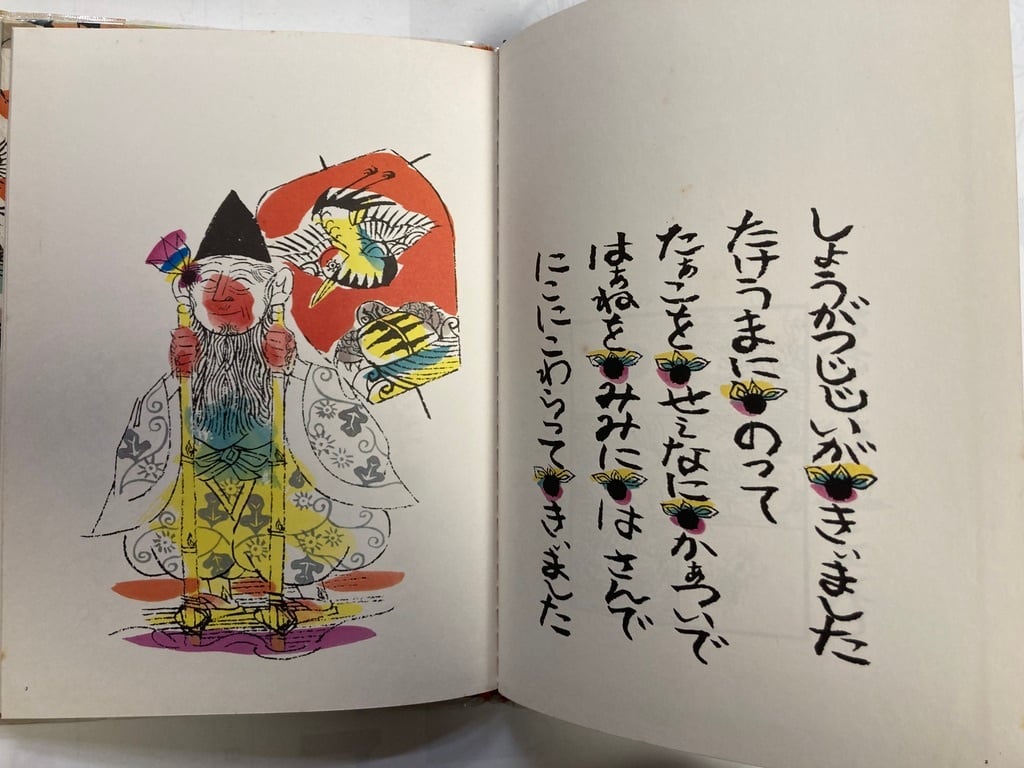 しょうがつじじいが きぃました
たけうまに のって
たぁこを せぇなに かぁついで
はぁねを みみに はさんで
にこにこわらって きぃました